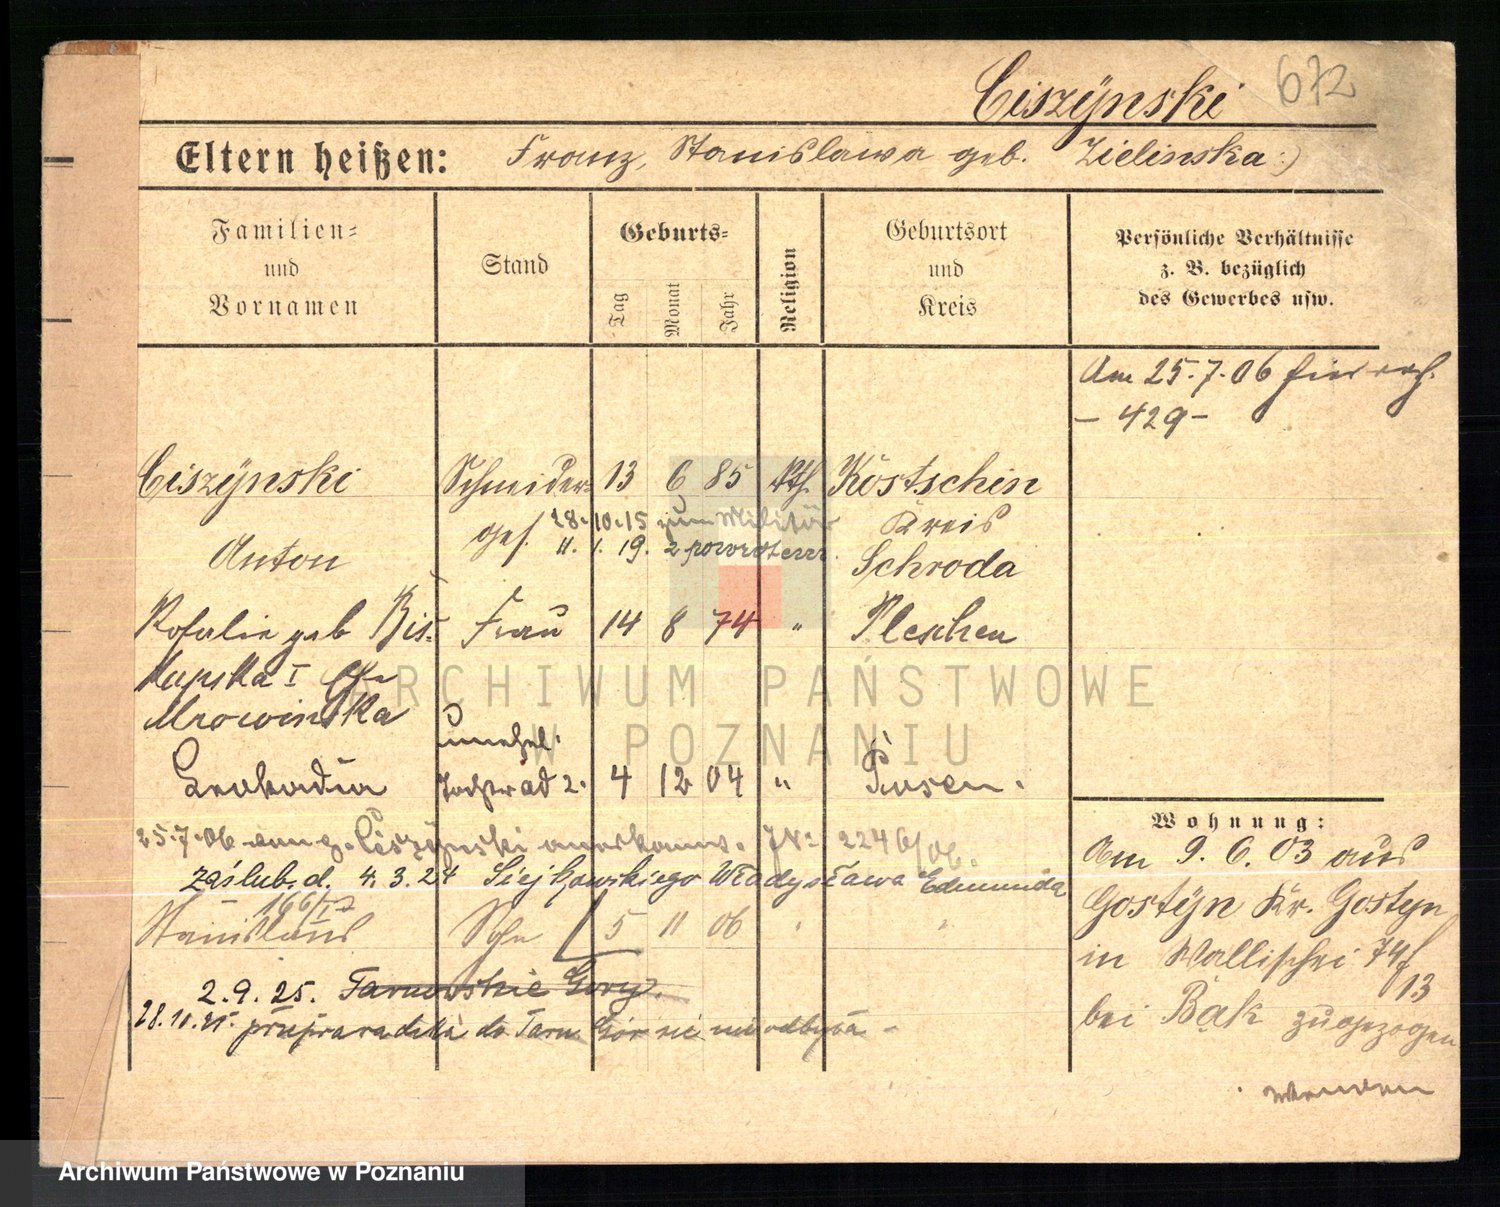 Ciszÿnski 672
Eltern heißen: Franz, Stanislawa geb. Zielinska:)
Familien-
und
Vornamen
Stand
Geburts-
Tag
Monat
Jahr
Religion
Geburtsort
und
Kreis
Persönliche Verhältnisse
z. B. bezüglich
des Gewerbes usw.
Am 25.7.06
- 429 -
Ciszÿnski Schneider- 13 6 85 kth. Kostschin
ges. 28.10.15 zum Militär Kreis
Anton 11. 1. 19. z powrotem Schroda
Rosalie geb Bis- Frau 14 8 74 " Pleschen
kupska I Ehe
Mrowinska
unehel.
Leokadia Tochter ad 2. 4 12 04 " Posen.
25.7.06 von Ciszÿnski anerkannt. 2246/06.
zaślub. d. 4.3.24 Władysława Edmunda
166/I
Stanislaus Sohn 5 11 06 " "
2.9.25. Tarnowskie Gory.
28.10.25. przeprowadzka do Tarn. Gór się nie odbyła -
Wohnung:
Am 9. 6. 03 aus
Gostÿn Kr. Gostyn
in Wallischei 74/
13
bei Bąk zugezogen
wenden
ARCHIWUM PAŃSTWOWE
W POZNANIU
Archiwum Państwowe w Poznaniu